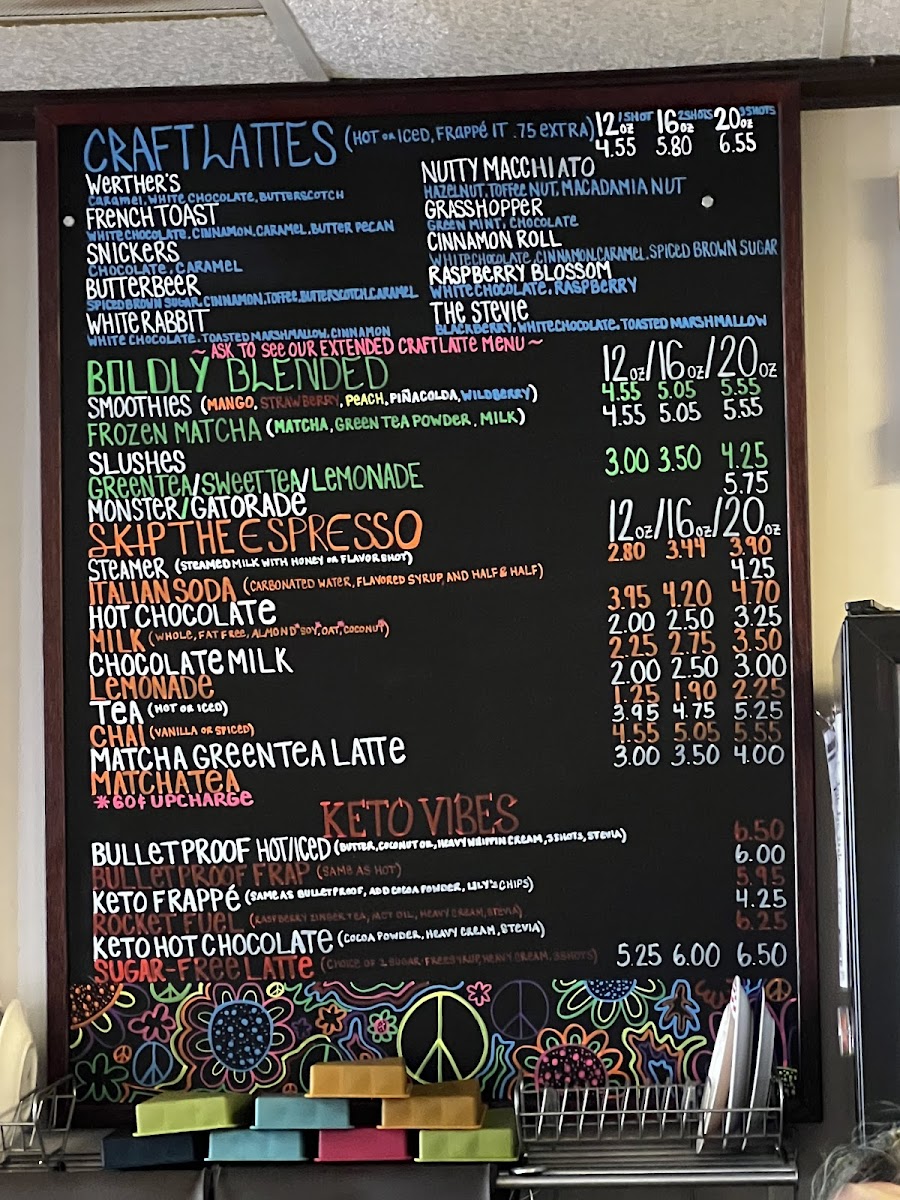 CRAFT LATTES (HOT OR ICED, FRAPPÉ IT .75 EXTRA) 12oz 1SHOT 16oz 2SHOTS 20oz 3SHOTS
4.55 5.80 6.55
WERTHER'S
CARAMEL, WHITE CHOCOLATE, BUTTERSCOTCH
FRENCH TOAST
WHITE CHOCOLATE, CINNAMON, CARAMEL, BUTTER PECAN
SNICKERS
CHOCOLATE, CARAMEL
BUTTERBEER
SPICED BROWN SUGAR, CINNAMON, TOFFEE, BUTTERSCOTCH, CARAMEL
WHITE RABBIT
WHITE CHOCOLATE, TOASTED MARSHMALLOW, CINNAMON
NUTTY MACCHIATO
HAZELNUT, TOFFEE NUT, MACADAMIA NUT
GRASSHOPPER
GREEN MINT, CHOCOLATE
CINNAMON ROLL
WHITE CHOCOLATE, CINNAMON, CARAMEL, SPICED BROWN SUGAR
RASPBERRY BLOSSOM
WHITE CHOCOLATE, RASPBERRY
THE STEVIE
BLACKBERRY, WHITE CHOCOLATE, TOASTED MARSHMALLOW
~ ASK TO SEE OUR EXTENDED CRAFT LATTE MENU ~
BOLDLY BLENDED 12oz/16oz/20oz
SMOOTHIES (MANGO, STRAWBERRY, PEACH, PIÑACOLDA, WILDBERRY) 4.55 5.05 5.55
FROZEN MATCHA (MATCHA, GREEN TEA POWDER, MILK) 4.55 5.05 5.55
SLUSHES
GREEN TEA/SWEET TEA/LEMONADE 3.00 3.50 4.25
MONSTER/GATORADE 5.75
SKIP THE ESPRESSO 12oz/16oz/20oz
STEAMER (STEAMED MILK WITH HONEY OR FLAVOR SHOT) 2.80 3.44 3.90
ITALIAN SODA (CARBONATED WATER, FLAVORED SYRUP, AND HALF & HALF) 4.25
HOT CHOCOLATE 3.95 4.20 4.70
MILK (WHOLE, FAT FREE, ALMOND* SOY*, OAT*, COCONUT*) 2.00 2.50 3.25
CHOCOLATE MILK 2.25 2.75 3.50
LEMONADE 2.00 2.50 3.00
TEA (HOT OR ICED) 1.25 1.90 2.25
CHAI (VANILLA OR SPICED) 3.95 4.75 5.25
MATCHA GREEN TEA LATTE 4.55 5.05 5.55
MATCHA TEA 3.00 3.50 4.00
*60¢ UPCHARGE
KETO VIBES
BULLETPROOF HOT/ICED (BUTTER, COCONUT OIL, HEAVY WHIPPIN CREAM, 3 SHOTS, STEVIA) 6.50
BULLETPROOF FRAP (SAME AS HOT) 6.00
KETO FRAPPÉ (SAME AS BULLETPROOF, ADD COCOA POWDER, LILY'S CHIPS) 5.95
ROCKET FUEL (RASPBERRY ZINGER TEA, MCT OIL, HEAVY CREAM, STEVIA) 4.25
KETO HOT CHOCOLATE (COCOA POWDER, HEAVY CREAM, STEVIA) 6.25
SUGAR-FREE LATTE (CHOICE OF 2 SUGAR-FREE SYRUP, HEAVY CREAM, 3 SHOTS) 5.25 6.00 6.50